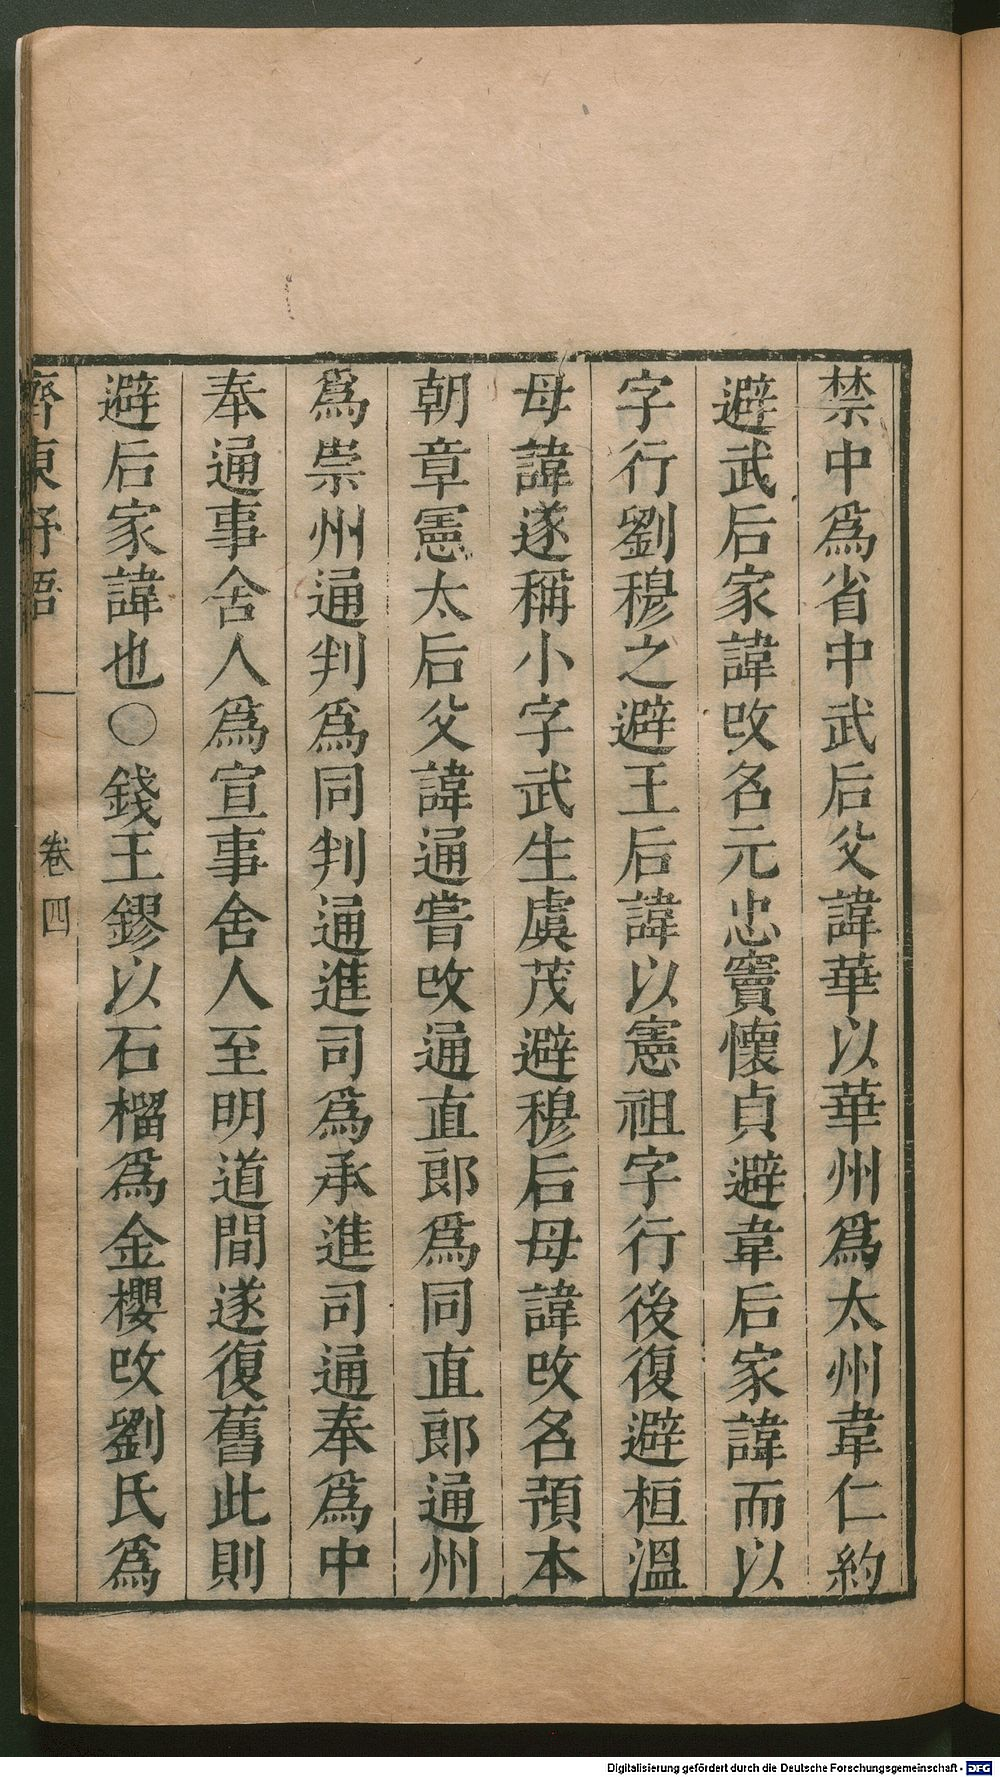 禁中爲省中武后父諱華以華州爲太州韋仁約
避武后家諱改名元忠竇懷貞避韋后家諱而以
字行劉穆之避王后諱以憲祖字行後復避桓溫
母諱遂稱小字武生虞茂避穆后母諱改名預本
朝章憲太后父諱通嘗改通直郎爲同直郎通州
爲崇州通判爲同判通進司爲承進司通奉爲中
奉通事舍人爲宣事舍人至明道間遂復舊此則
避后家諱也○錢王鏐以石榴爲金櫻改劉氏爲
齊東野語 卷四
Digitalisierung gefördert durch die Deutsche Forschungsgemeinschaft - DFG